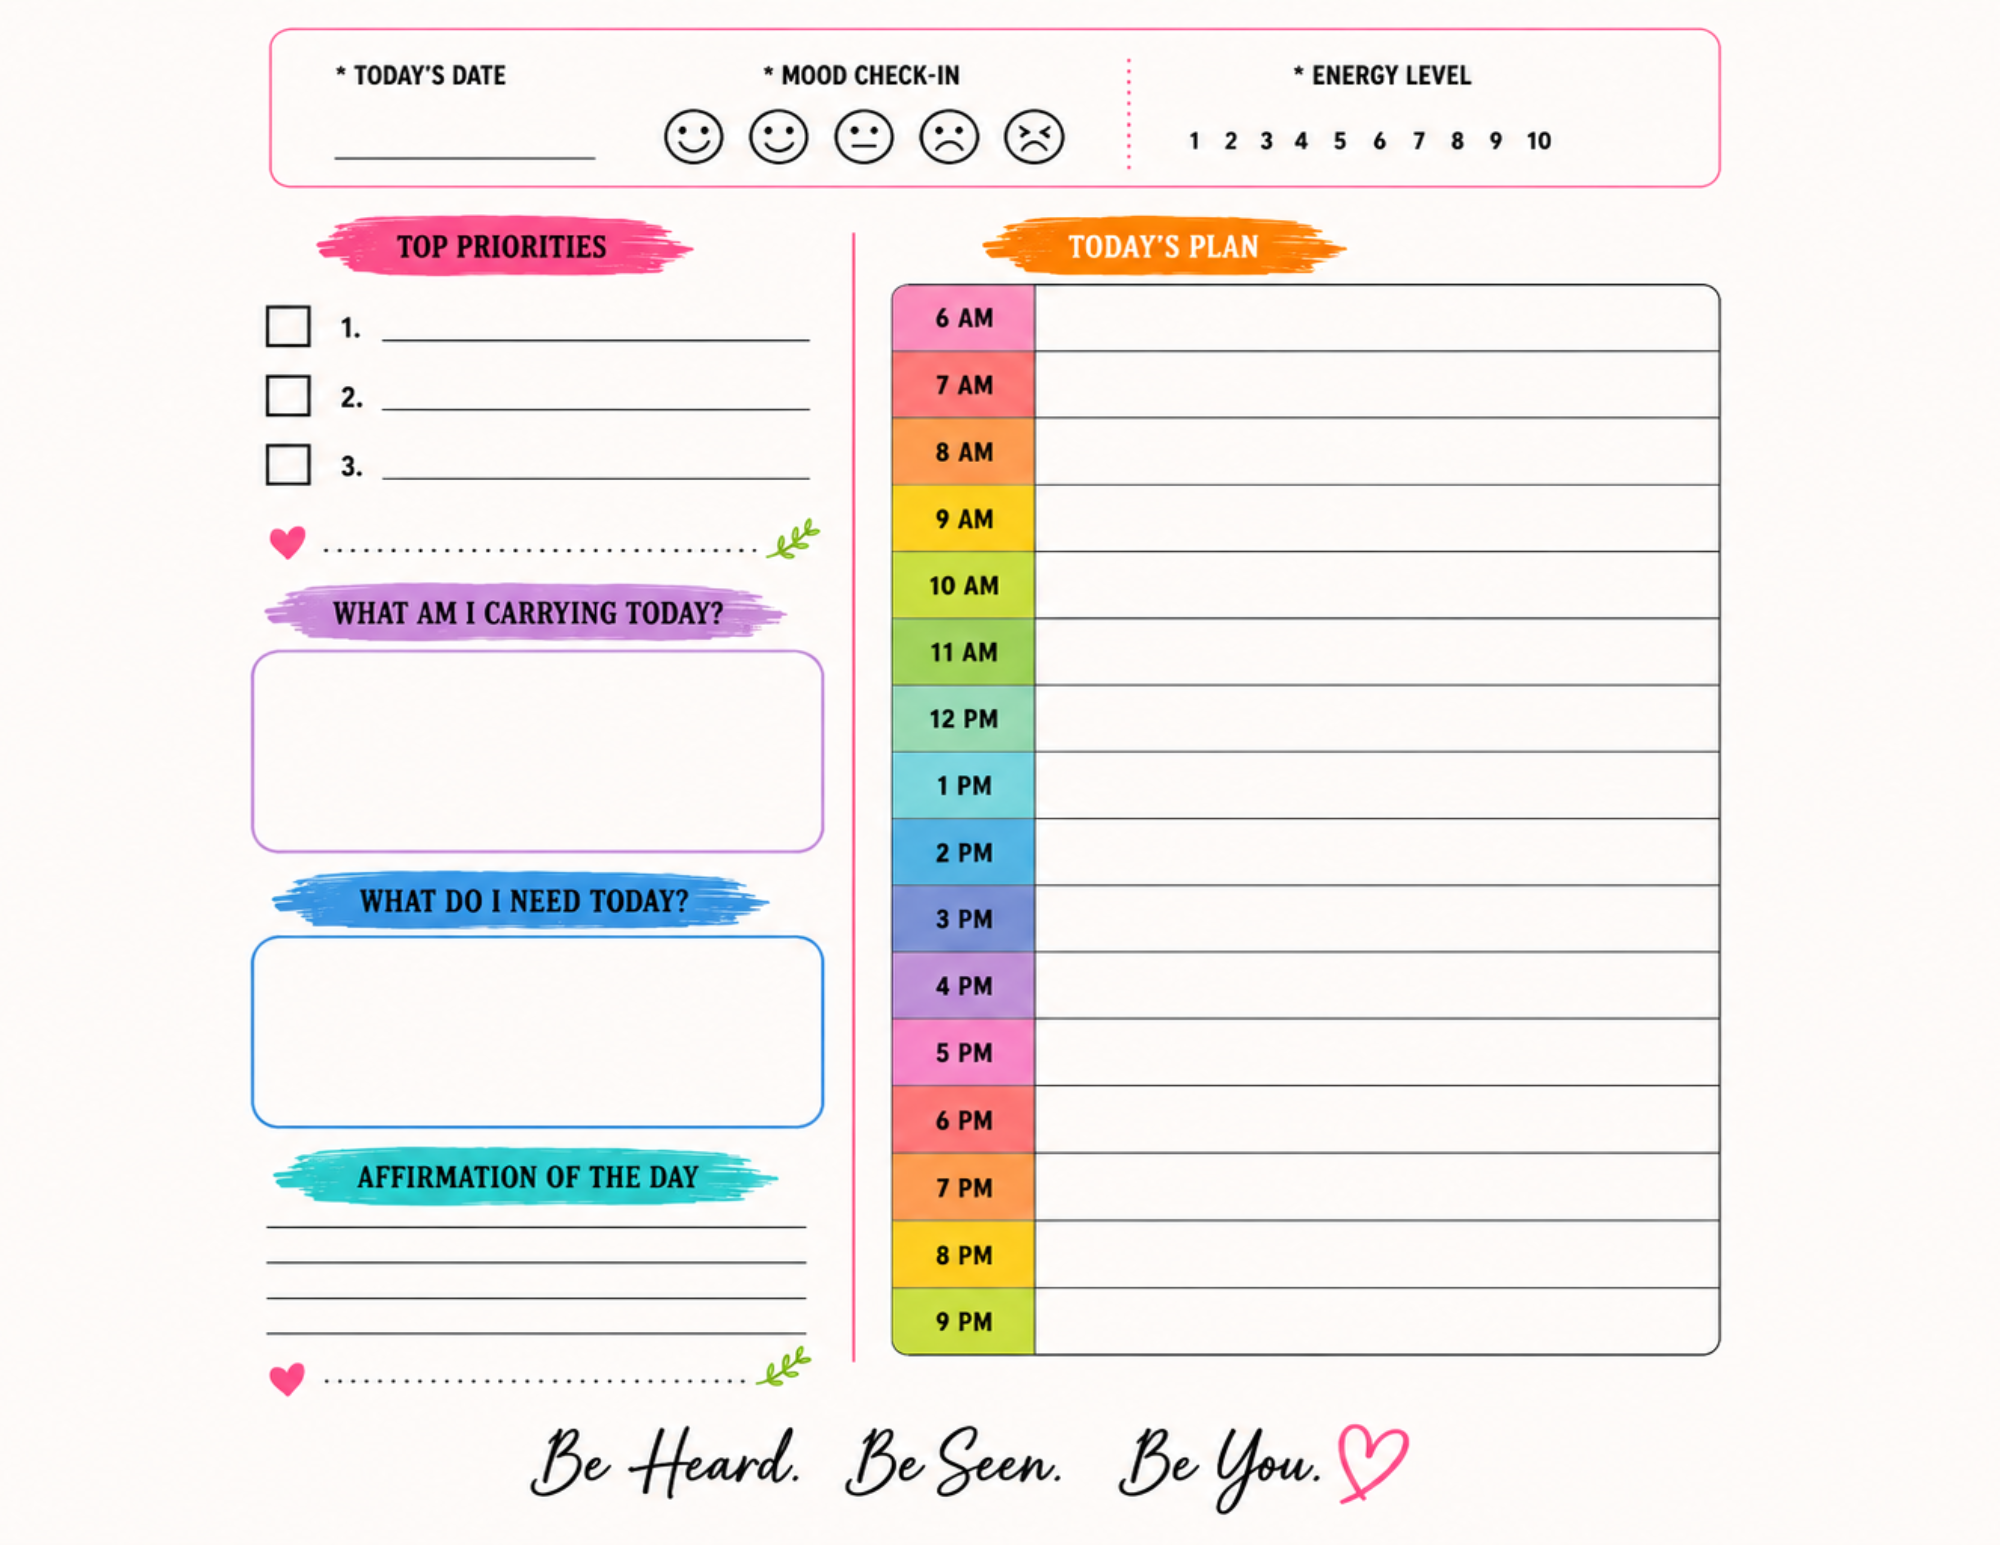 * TODAY'S DATE
* MOOD CHECK-IN
* ENERGY LEVEL
1 2 3 4 5 6 7 8 9 10
TOP PRIORITIES
1.
2.
3.
WHAT AM I CARRYING TODAY?
WHAT DO I NEED TODAY?
AFFIRMATION OF THE DAY
TODAY'S PLAN
6 AM
7 AM
8 AM
9 AM
10 AM
11 AM
12 PM
1 PM
2 PM
3 PM
4 PM
5 PM
6 PM
7 PM
8 PM
9 PM
Be Heard. Be Seen. Be You.